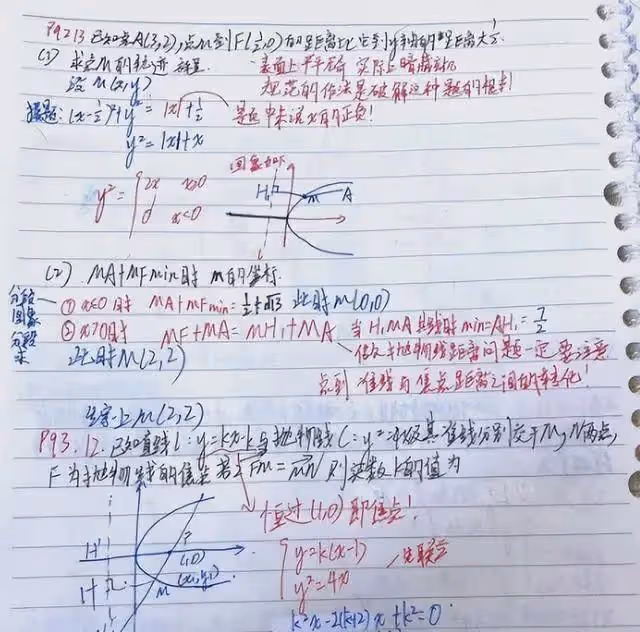 P92 13 已知点A(3,2),点M到F(½,0)的距离比它到y轴的距离大½.
(1) 求点M的轨迹方程.
表面上平平无奇 实际上暗藏杀机
设M(x,y)
规范的作法是破解这种题的根本!
据题: (x-½)²+y² = |x|+½
题中未说x的正负!
y² = |x|+x
图象如下
y² = { 2x x≥0
0 x<0
H₁ M A
(2) MA+MF min时 M的坐标.
分段图象分段求
① x≤0时 MA+MF min = ½+√13 此时M(0,0)
② x>0时 MF+MA = MH₁+MA 当H₁MA共线时 min=AH₁=7/2
此时M(2,2)
但凡抛物线距离问题一定要注意
点到准线与焦点距离之间的转化!
综上M(2,2)
P93.12.已知直线l:y=kx-k与抛物线C:y²=4x及其准线分别交于M,N两点,
F为抛物线的焦点 若2FM=MN 则实数k的值为
恒过(1,0)即焦点!
H' F (1,0)
{ y=k(x-1)
y²=4x
先联立
H M (x₁,y₁)
k²x-2(k+2)x+k²=0